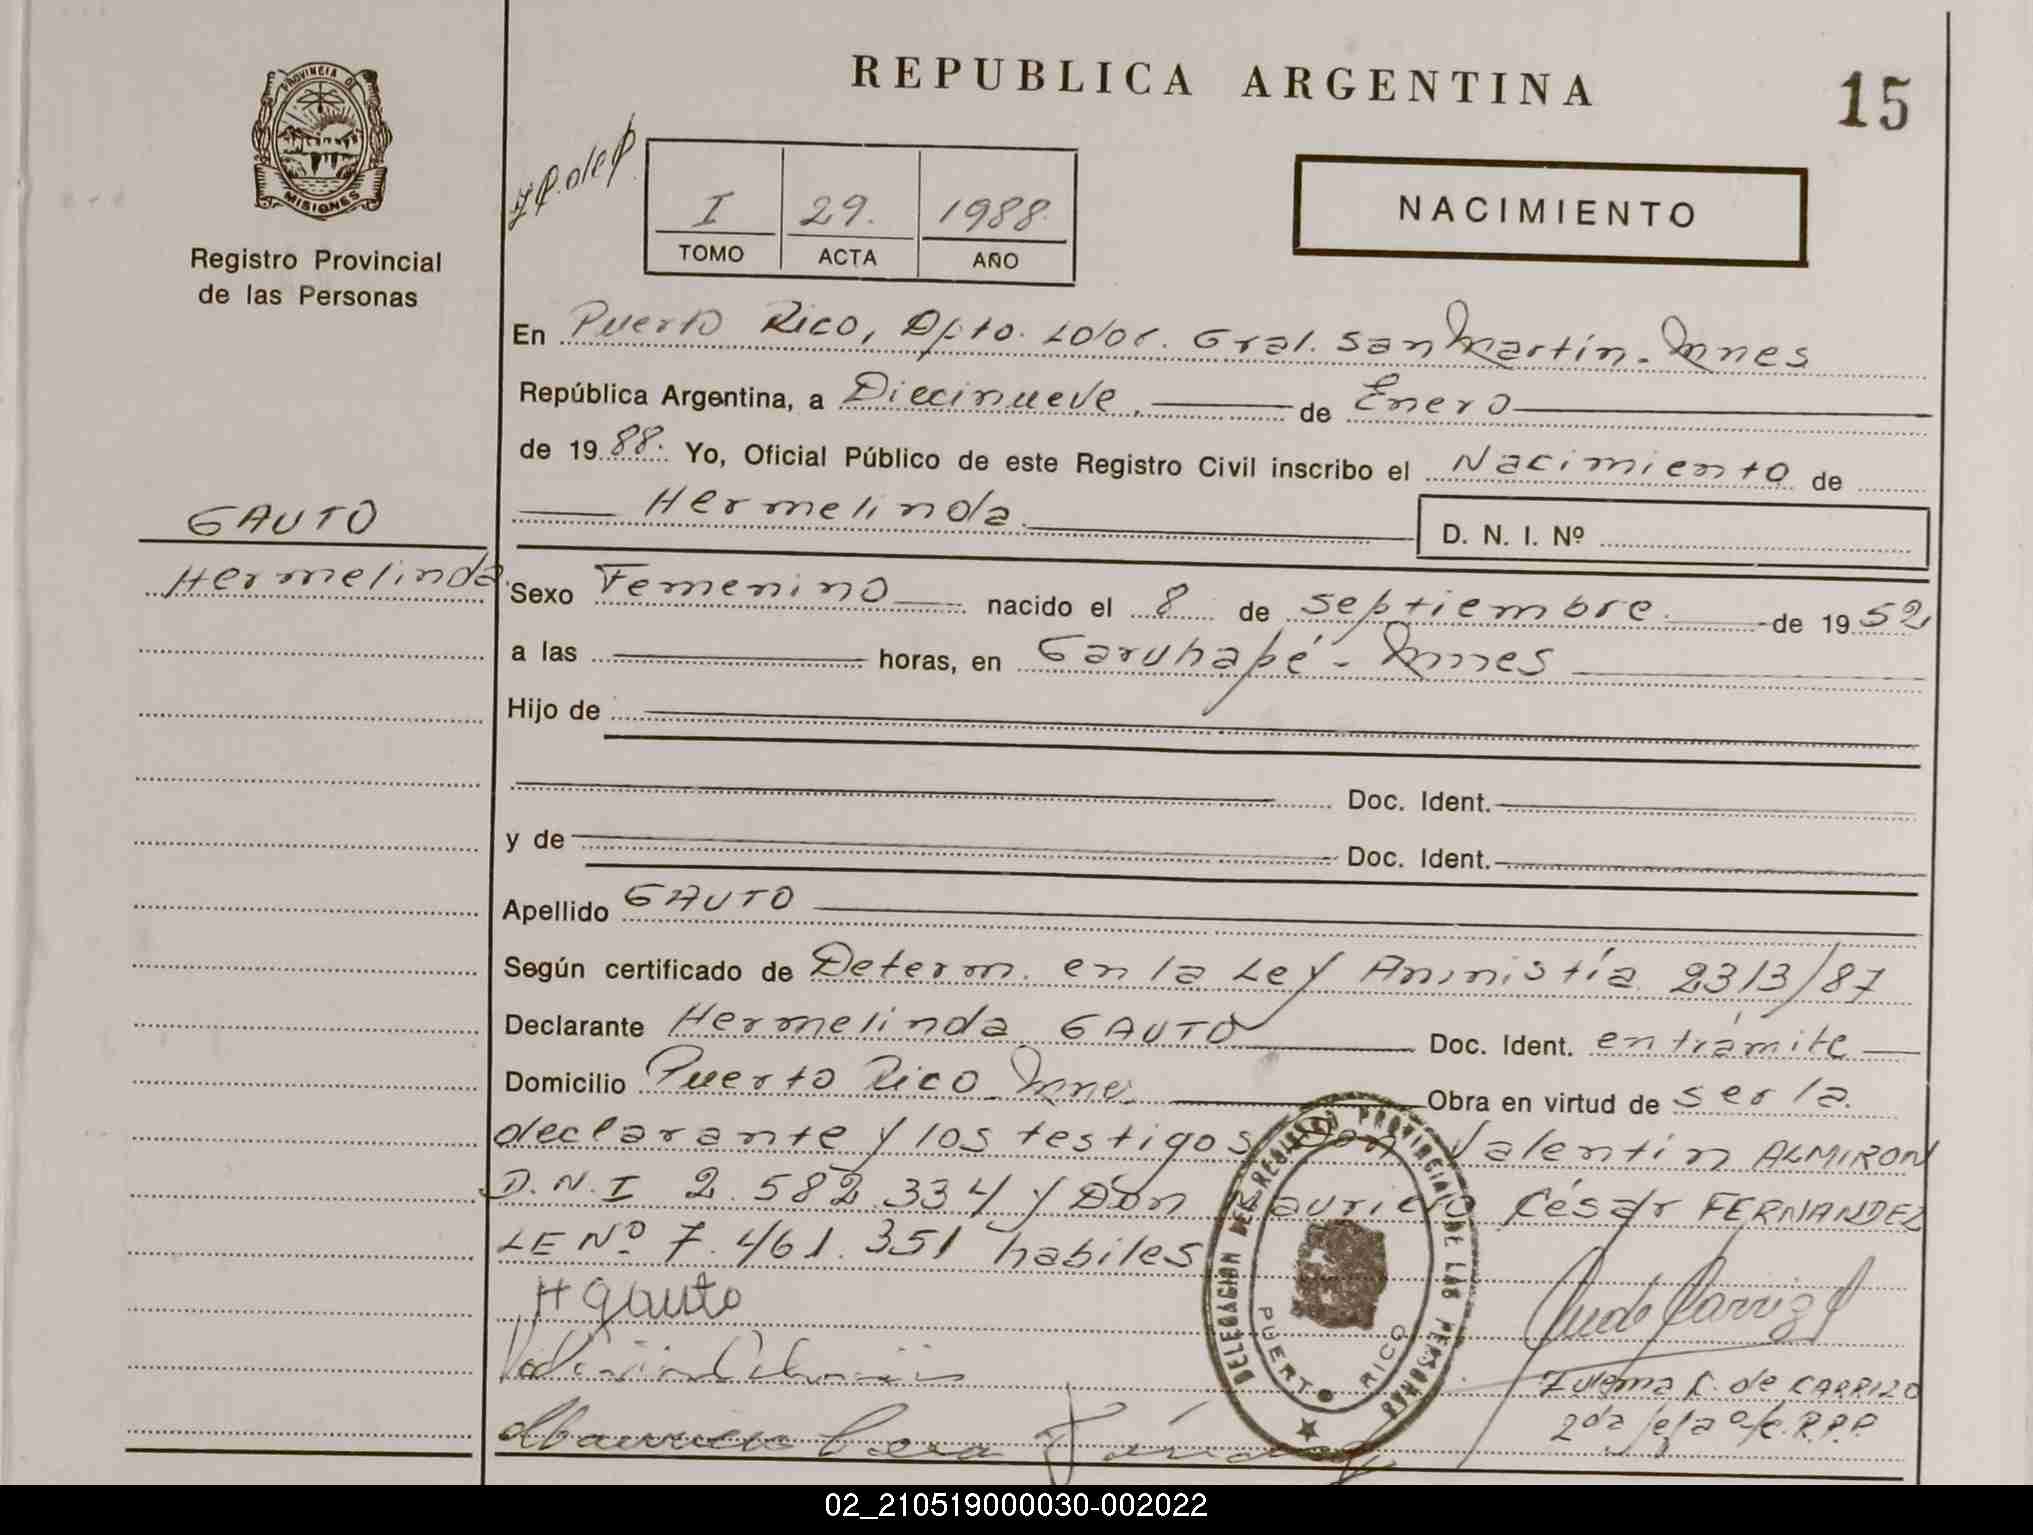 REPUBLICA ARGENTINA
15
PROVINCIA DE
MISIONES
Registro Provincial
de las Personas
I 29. 1988
TOMO ACTA AÑO
NACIMIENTO
En Puerto Rico, Dpto. Lddr. Gral. San Martín. Mnes
República Argentina, a Diecinueve, de Enero
de 1988. Yo, Oficial Público de este Registro Civil inscribo el Nacimiento de
Hermelinda. D. N. I. Nº
GAUTO
Hermelinda.
Sexo Femenino nacido el 8 de septiembre. de 1952
a las horas, en Garuhapé - Mnes
Hijo de
Doc. Ident.
y de Doc. Ident.
Apellido GAUTO
Según certificado de Determ. en la Ley Aminístia 2313/87
Declarante Hermelinda GAUTO Doc. Ident. en trámite
Domicilio Puerto Rico Mnes. Obra en virtud de ser la.
declarante y los testigos Don Valentín ALMIRON
D.N.I 2.582.334 y Don Mauricio César FERNANDEZ
LE Nº 7.461.351 habiles
H gauto
DELEGACION DEL REGISTRO PROVINCIAL DE LAS PERSONAS
PUERTO RICO
Zulema C. de CARRIZO
02_210519000030-002022